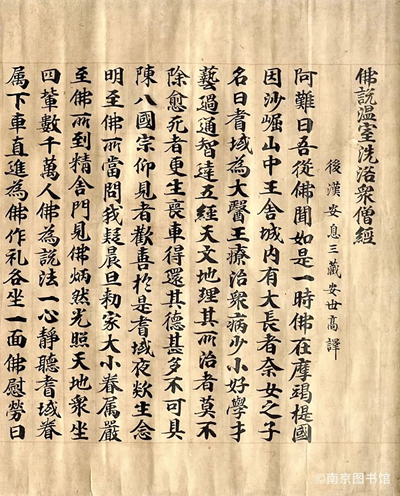 佛説温室洗浴衆僧經
後漢安息三藏安世高譯
阿難曰吾從佛聞如是一時佛在摩竭提國
因沙崛山中王舍城内有大長者奈女之子
名曰耆域為大醫王療治衆病少小好學才
藝過通智達五經天文地理其所治者莫不
除愈死者更生喪車得還其德甚多不可具
陳八國宗仰見者歡喜於是耆域夜欻生念
明至佛所當問我疑晨旦勑家大小眷属嚴
至佛所到精舍門見佛炳然光照天地衆坐
四輩數千萬人佛為説法一心靜聽耆域眷
属下車直進為佛作礼各坐一面佛慰勞曰
©南京图书馆